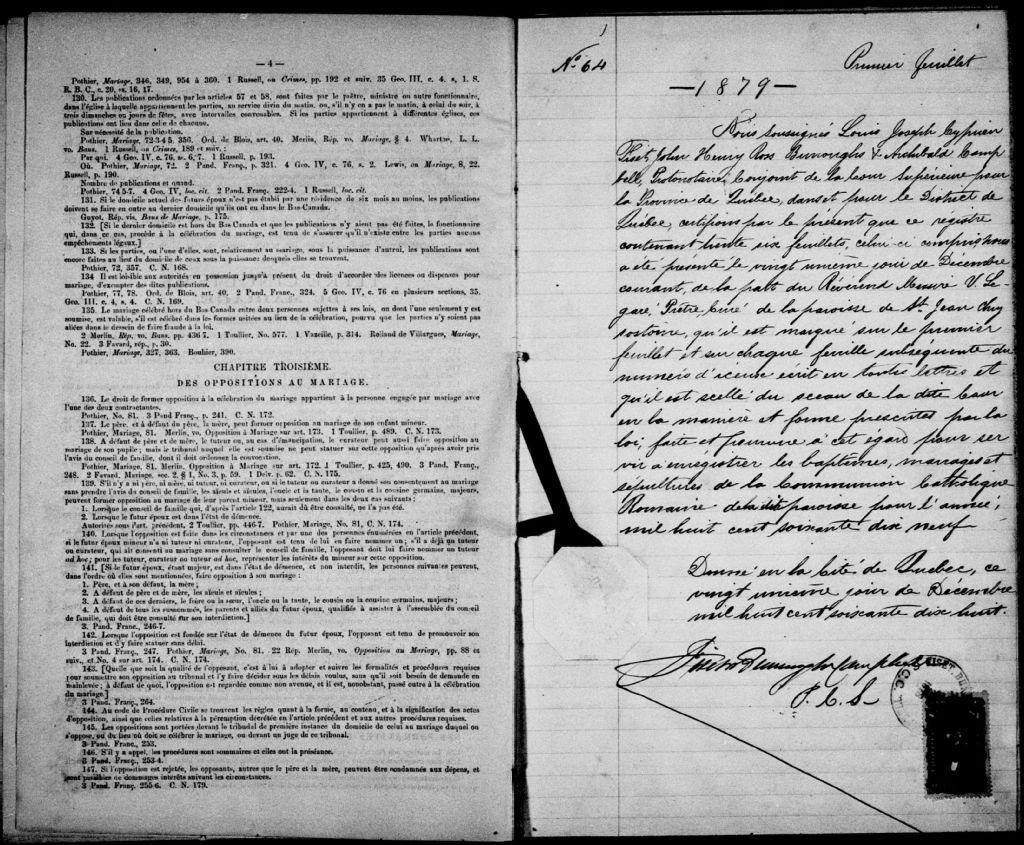 — 4 —
Pothier, Mariage, 346, 349, 954 à 360. 1 Russell, on Crimes, pp. 192 et suiv. 35 Geo. III, c. 4, s, 1. S.
R. B. C., c. 20, ss. 16, 17.
130. Les publications ordonnées par les articles 57 et 58, sont faites par le prêtre, ministre ou autre fonctionnaire,
dans l'église à laquelle appartiennent les parties, au service divin du matin, ou, s'il n'y en a pas le matin, à celui du soir, à
trois dimanches ou jours de fêtes, avec intervalles convenables. Si les parties appartiennent à différentes églises, ces
publications ont lieu dans celle de chacune.
Sur nécessité de la publication.
Pothier, Mariage, 72-3-4 5, 356. Ord. de Blois, art. 40. Merlin, Rép, vo. Mariage, § 4. Wharton, L. L.
vo. Bans. 1 Russell, on Crimes, 189 et suiv.:
Par qui. 4 Geo. IV, c. 76, ss. 6, 7. 1 Russell, p. 193.
Où. Pothier, Mariage, 72. 2 Pand. Franç., p. 321. 4 Geo. IV, c. 76, s. 2. Lewis, on Mariage, 8, 22.
Russell, p. 190.
Nombre de publications et quand.
Pothier, 74 5-7. 4 Geo, IV, loc. cit. 2 Pand. Franç. 222-4. 1 Russell, loc. cit.
131. Si le domicile actuel des futurs époux n'est pas établi par une résidence de six mois au moins, les publications
doivent se faire en outre au dernier domicile qu'ils ont eu dans le Bas Canada.
Guyot. Rép. vis, Bans de Mariage, p. 175.
132. [Si le dernier domicile est hors du Bas Canada et que les publications n'y aient pas été faites, le fonctionnaire
qui, dans ce cas, procède à la célébration du mariage, est tenu de s'assurer qu'il n'existe entre les parties aucuns
empêchements légaux.]
133. Si les parties, ou l'une d'elles, sont, relativement au mariage, sous la puissance d'autrui, les publications sont
encore faites au lieu du domicile de ceux sous la puissance desquels elles se trouvent.
Pothier, 72, 357. C. N. 168.
134 Il est loisible aux autorités en possession jusqu'à présent du droit d'accorder des licences ou dispenses pour
mariage, d'exempter des dites publications.
Pothier, 77, 78. Ord. de Blois, art. 40, 2 Pand. Franç., 324. 5 Geo. IV, c. 76 en plusieurs sections, 35.
Geo. III, c. 4, s, 4. C. N. 169.
135. Le mariage célébré hors du Bas Canada entre deux personnes sujettes à ses lois, ou dont l'une seulement y est
soumise, est valable, s'il est célébré dans les formes usitées au lieu de la célébration, pourvu que les parties n'y soient pas
allées dans le dessein de faire fraude à la loi.
2 Merlin, Rép, vo. Bans. pp. 436 7. 1 Toullier, No. 577. 1 Vazeille, p. 314. Rolland de Villargues, Mariage,
No. 22. 3 Favard, rép., p. 30.
Pothier, Mariage, 327, 363. Bouhier, 390.
CHAPITRE TROISIÈME.
DES OPPOSITIONS AU MARIAGE.
136. Le droit de former opposition à la célébration du mariage appartient à la personne engagée par mariage avec
l'une des deux contractantes.
Pothier, No. 81. 3 Pand Franç., p. 241. C. N. 172.
137. Le père, et à défaut du père, la mère, peut former opposition au mariage de son enfant mineur.
Pothier, Mariage, 81. Merlin, vo, Opposition à Mariage sur art. 173. 1 Toullier, p. 489. C. N. 173.
138. A défaut de père et de mère, le tuteur ou, au cas d'émancipation, le curateur peut aussi faire opposition au
mariage de son pupile; mais le tribunal auquel elle est soumise ne peut statuer sur cette opposition qu'après avoir pris
l'avis du conseil de famille, dont il doit ordonner la convocation.
Pothier, Mariage, 81. Merlin, Opposition à Mariage sur art. 172. 1 Toullier, p. 425, 490. 3 Pand. Franç.,
248. 2 Favard, Mariage, sec. 2, § 1, No. 3, p. 59. 1 Delv. p. 62. C. N. 175.
139. S'il n'y a ni père, ni mère, ni tuteur, ni curateur, ou si le tuteur ou curateur a donné son consentement au mariage
sans prendre l'avis du conseil de famille, les aïeuls et aïeules, l'oncle et la tante, le cousin et la cousine germains, majeurs,
peuvent former opposition au mariage de leur parent mineur, mais seulement dans les deux cas suivants:
1. Lorsque le conseil de famille qui, d'après l'article 122, aurait dû être consulté, ne l'a pas été.
2. Lorsque le futur époux est dans l'état de démence.
Autorités sous l'art. précédent, 2 Toullier, pp. 446-7. Pothier, Mariage, No. 81, C. N. 174.
140. Lorsque l'opposition est faite dans les circonstances et par une des personnes énumérées en l'article précédent,
si le futur époux mineur n'a ni tuteur ni curateur, l'opposant est tenu de lui en faire nommer un; s'il a déjà un tuteur
ou curateur, qui ait consenti au mariage sans consulter le conseil de famille, l'opposant doit lui faire nommer un tuteur
ad hoc; pour les tuteur, curateur ou tuteur ad hoc, représenter les intérêts du mineur sur cette opposition.
141. [Si le futur époux, étant majeur, est dans l'état de démence, et non interdit, les personnes suivantes peuvent,
dans l'ordre où elles sont mentionnées, faire opposition à son mariage:
1. Père, et à son défaut, la mère;
2. A défaut de père et de mère, les aïeuls et aïeules;
3. A défaut de ces derniers, le frère ou la sœur, l'oncle ou la tante, le cousin ou la cousine germains, majeurs;
4. A défaut de tous les susnommés, les parents et alliés du futur époux, qualifiés à assister à l'assemblée du conseil
de famille, qui doit être consulté sur son interdiction.]
3. Pand. Franç., 246-7.
142. Lorsque l'opposition est fondée sur l'état de démence du futur époux, l'opposant est tenu de promouvoir son
interdiction et d'y faire statuer sans délai.
3 Pand. Franç., 247. Pothier, Mariage, No. 81. 22 Rép. Merlin, vo. Opposition au Mariage, pp. 88 et
suiv., et No. 4 sur art. 174. C. N. 174.
143. [Quelle que soit la qualité de l'opposant, c'est à lui à adopter et suivre les formalités et procédures requises
pour soumettre son opposition au tribunal et s'y faire décider sous les délais voulus, sans qu'il soit besoin de demande en
mainlevée; à défaut de quoi, l'opposition est regardée comme non avenue, et il est, nonobstant, passé outre à la célébration
du mariage.]
3 Pand. Franç., 264.
144. Au code de Procédure Civile se trouvent les règles quant à la forme, au contenu, et à la signification des actes
d'opposition, ainsi que celles relatives à la péremption décrétée en l'article précédent et aux autres procédures requises.
145. Les oppositions sont portées devant le tribunal de première instance du domicile de celui au mariage duquel on
s'oppose, ou du lieu où doit se célébrer le mariage, ou devant un juge de ce tribunal.
3 Pand. Franç., 253.
146. S'il y a appel, les procédures sont sommaires et elles ont la préséance.
3 Pand. Franç., 253-4.
147. Si l'opposition est rejetée, les opposants, autres que le père et la mère, peuvent être condamnés aux dépens, et
sont passibles de dommages intérêts suivant les circonstances.
3 Pand. Franç. 255-6. C. N. 179.
No 64
Premier feuillet
— 1879 —
Nous soussignés Louis Joseph Cyprien
Fiset, John Henry Ross Burroughs & Archibald Camp
bell, Protonotaire Conjoint de la Cour Supérieure pour
la Province de Québec, dans et pour le District de
Québec, certifions par le présent que ce registre
contenant trente six feuillets, celui-ci compris, nous
a été présenté le vingt unième jour de Décembre
courant, de la part du Révérend Messire V. Le-
garé, Prêtre Curé de la paroisse de St. Jean Chry
sostome, qu'il est marqué sur le premier
feuillet et sur chaque feuille subséquente du
numéro d'iceux écrit en toutes lettres et
qu'il est scellé du sceau de la dite Cour
en la manière et forme presentes par la
loi, faite et pourvue à cet égard pour ser
vir à enrégistrer les baptêmes, mariages et
sépultures de la Communion Catholique
Romaine de la dite paroisse pour l'année,
mil huit cent soixante dix neuf
Donné en la Cité de Quebec, ce
vingt unième jour de Décembre
mil huit cent soixante dix huit.
Fiset Burroughs Campbell
P. C. S.